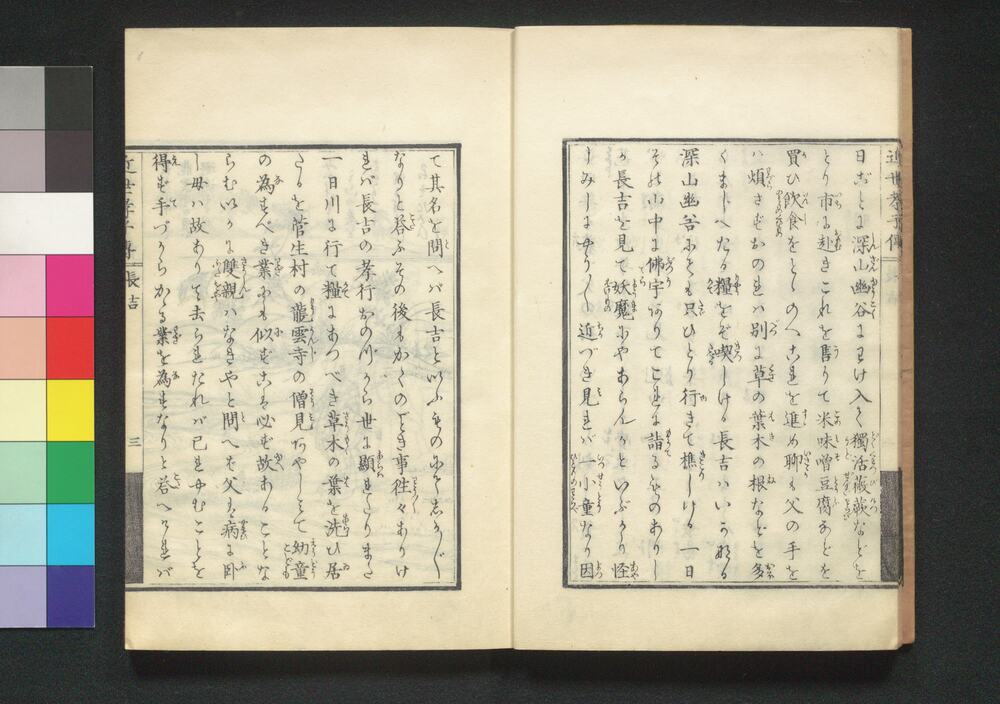 近世孝子傳
日ごとに深山幽谷にわけ入り獨活薇蕨などを
とり市に赴きこれを售りて米味噌豆腐などを
買ひ飲食をとゝのへこれを進め聊も父の手を
ハ煩さずおのれハ別に草の葉木の根などを多
くまじへたる糧をぞ喫しける長吉ハいかなる
深山幽谷にても只ひとり行きて樵しける一日
その山中に佛宇ありてこれに詣るものありし
が長吉を見て妖魔にやあらんかといぶかり怪
しみしにやうやうに近づき見れバ一小童なり因
て其名を問へバ長吉といふものにて志かじ
なりと答ふその後もかくのごとき事往々ありけ
れバ長吉の孝行おのづから世に顯れたりまた
一日川に行て糧にあつべき草木の葉を洗ひ居
たるを菅生村の龍雲寺の僧見あやしみて幼童
の為すべき業にも似ずこは必ず故あることな
らむいかに雙親ハなきやと問へば父は病に臥
し母ハ故ありて去られたれバ已むことを
得ず手づからかゝる業を為すなりと答へけれバ
近世孝子傳
長吉
三